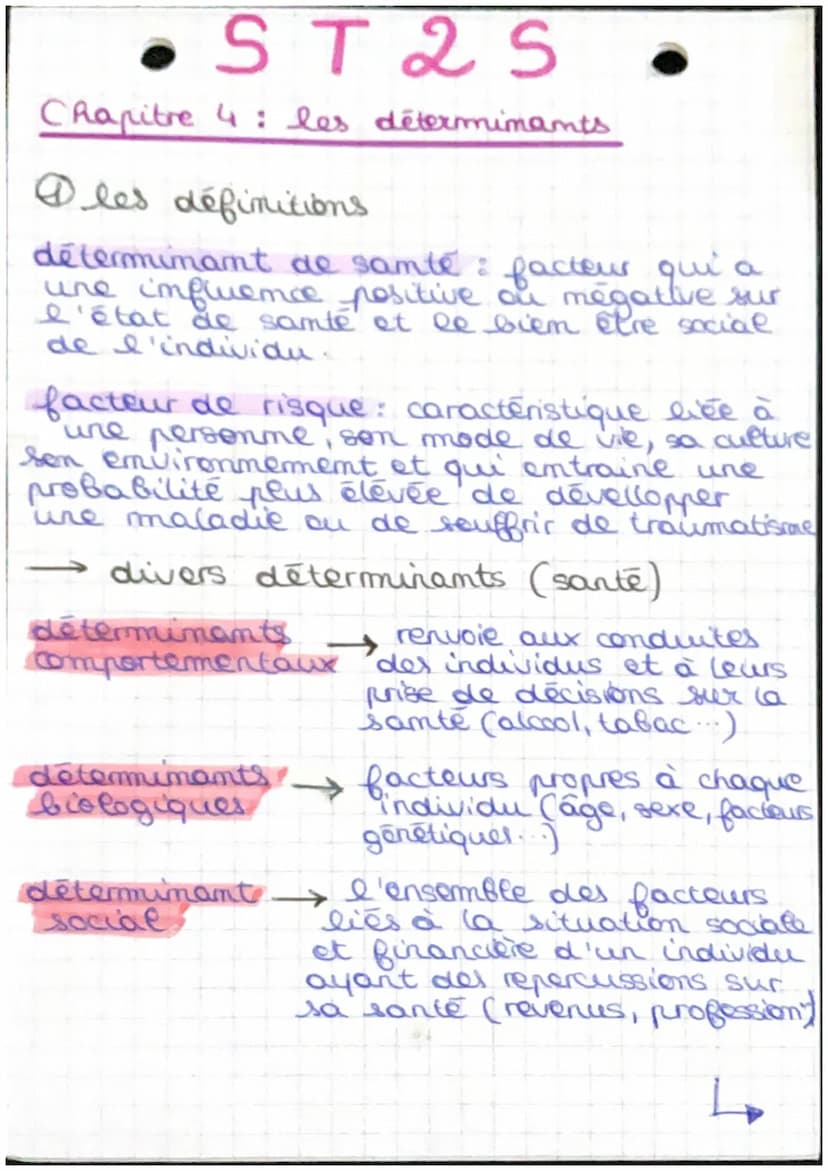 ST2S
Chapitre 4 : les déterminants
① les définitions
déterminant de santé : facteur qui a
une influence positive ou négative sur
l'état de santé et le bien être social
de l'individu.
facteur de risque : caractéristique liée à
une personne, son mode de vie, sa culture
son environnement et qui entraine une
probabilité plus élévée de dévellopper
une maladie ou de souffrir de traumatisme
→ divers déterminants (santé)
déterminants → renvoie aux conduites
comportementaux des individus et à leurs
prise de décisions sur la
santé (alcool, tabac...)
déterminants → facteurs propres à chaque
biologiques individu (âge, sexe, facteurs
génétiques...)
déterminant → l'ensemble des facteurs
social liés à la situation sociale
et financière d'un individu
ayant des repercussions sur
sa santé (revenus, profession)
↳